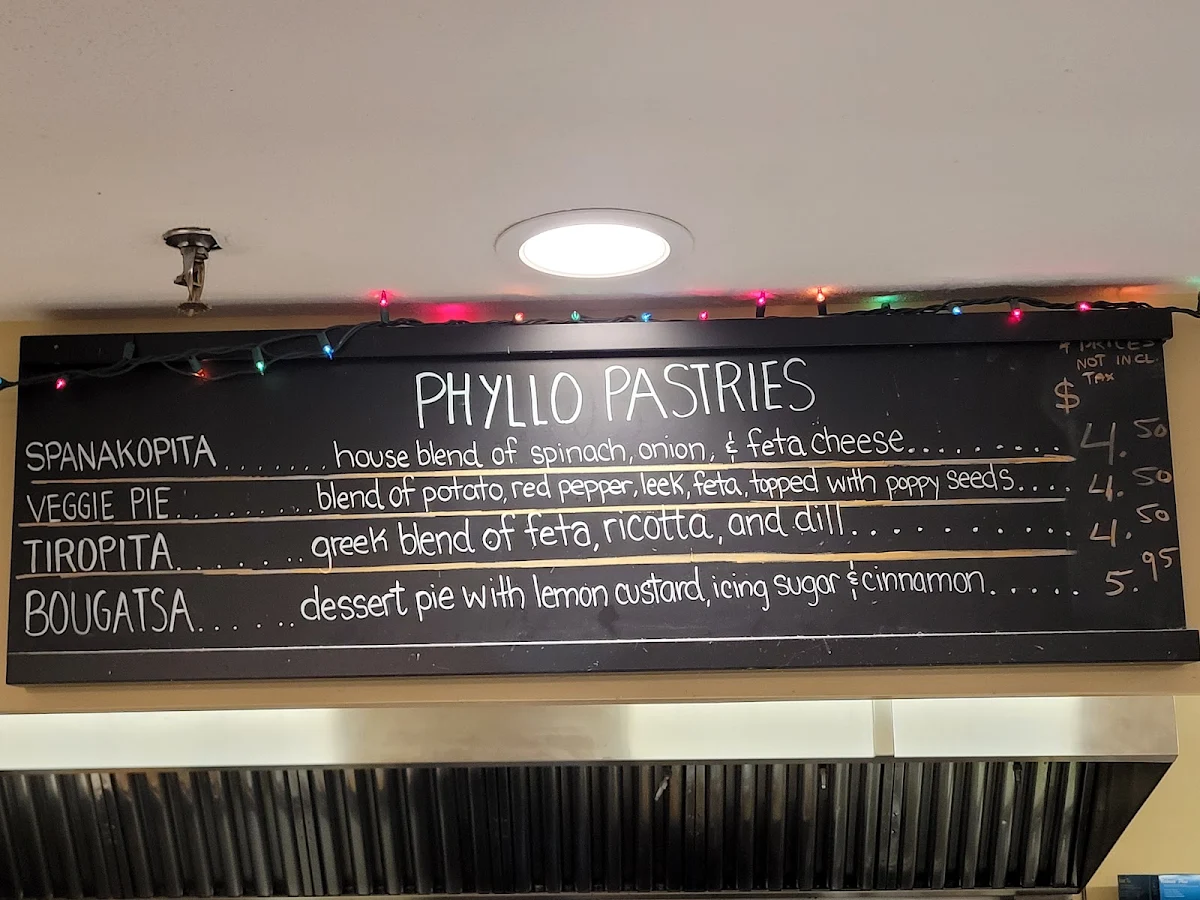 PRICES
NOT INCL.
TAX
$
PHYLLO PASTRIES
SPANAKOPITA........house blend of spinach, onion, & feta cheese......... 4.50
VEGGIE PIE..........blend of potato, red pepper, leek, feta, topped with poppy seeds.... 4.50
TIROPITA........greek blend of feta, ricotta, and dill........... 4.50
BOUGATSA......dessert pie with lemon custard, icing sugar & cinnamon..... 5.95